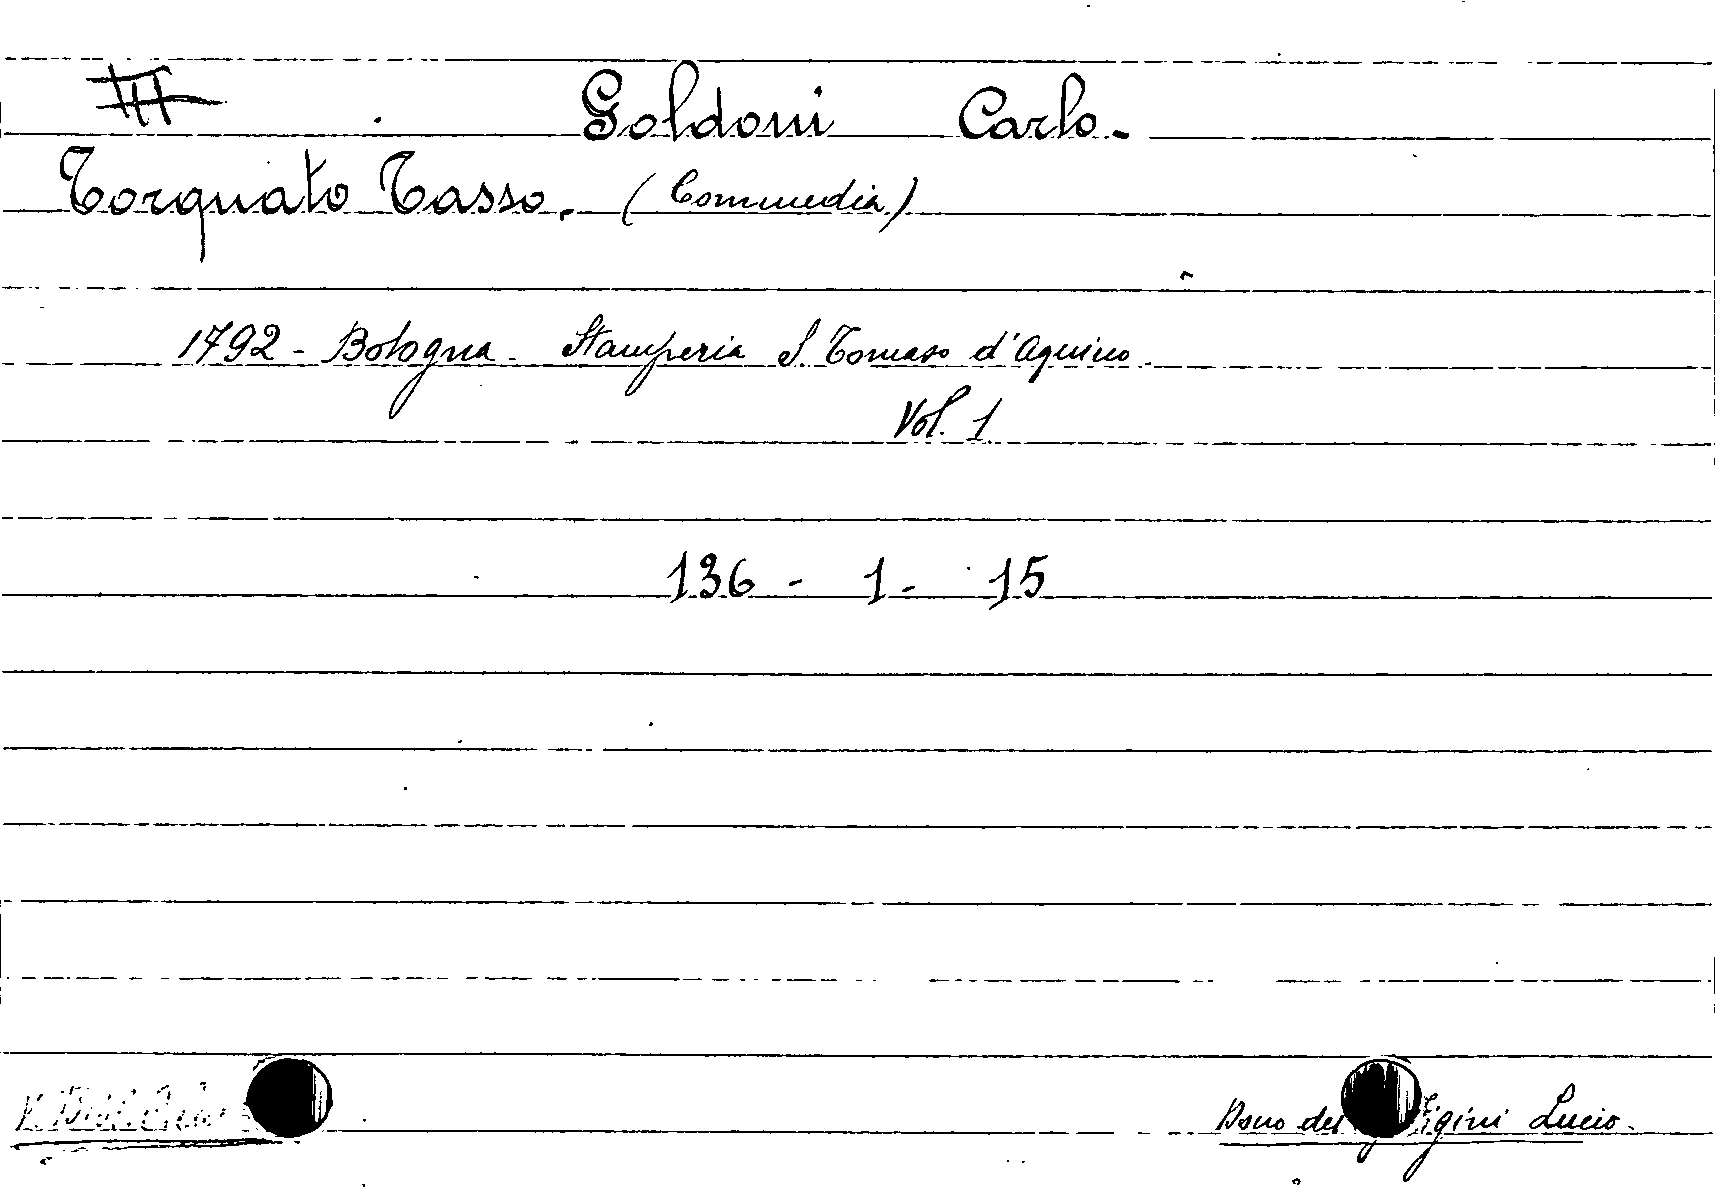 III Goldoni Carlo.
Torquato Tasso. (Commedia)
1792 - Bologna - Stamperia S. Tomaso d'Aquino.
Vol. 1
136 - 1 - 15
Dono del Figini Lucio.